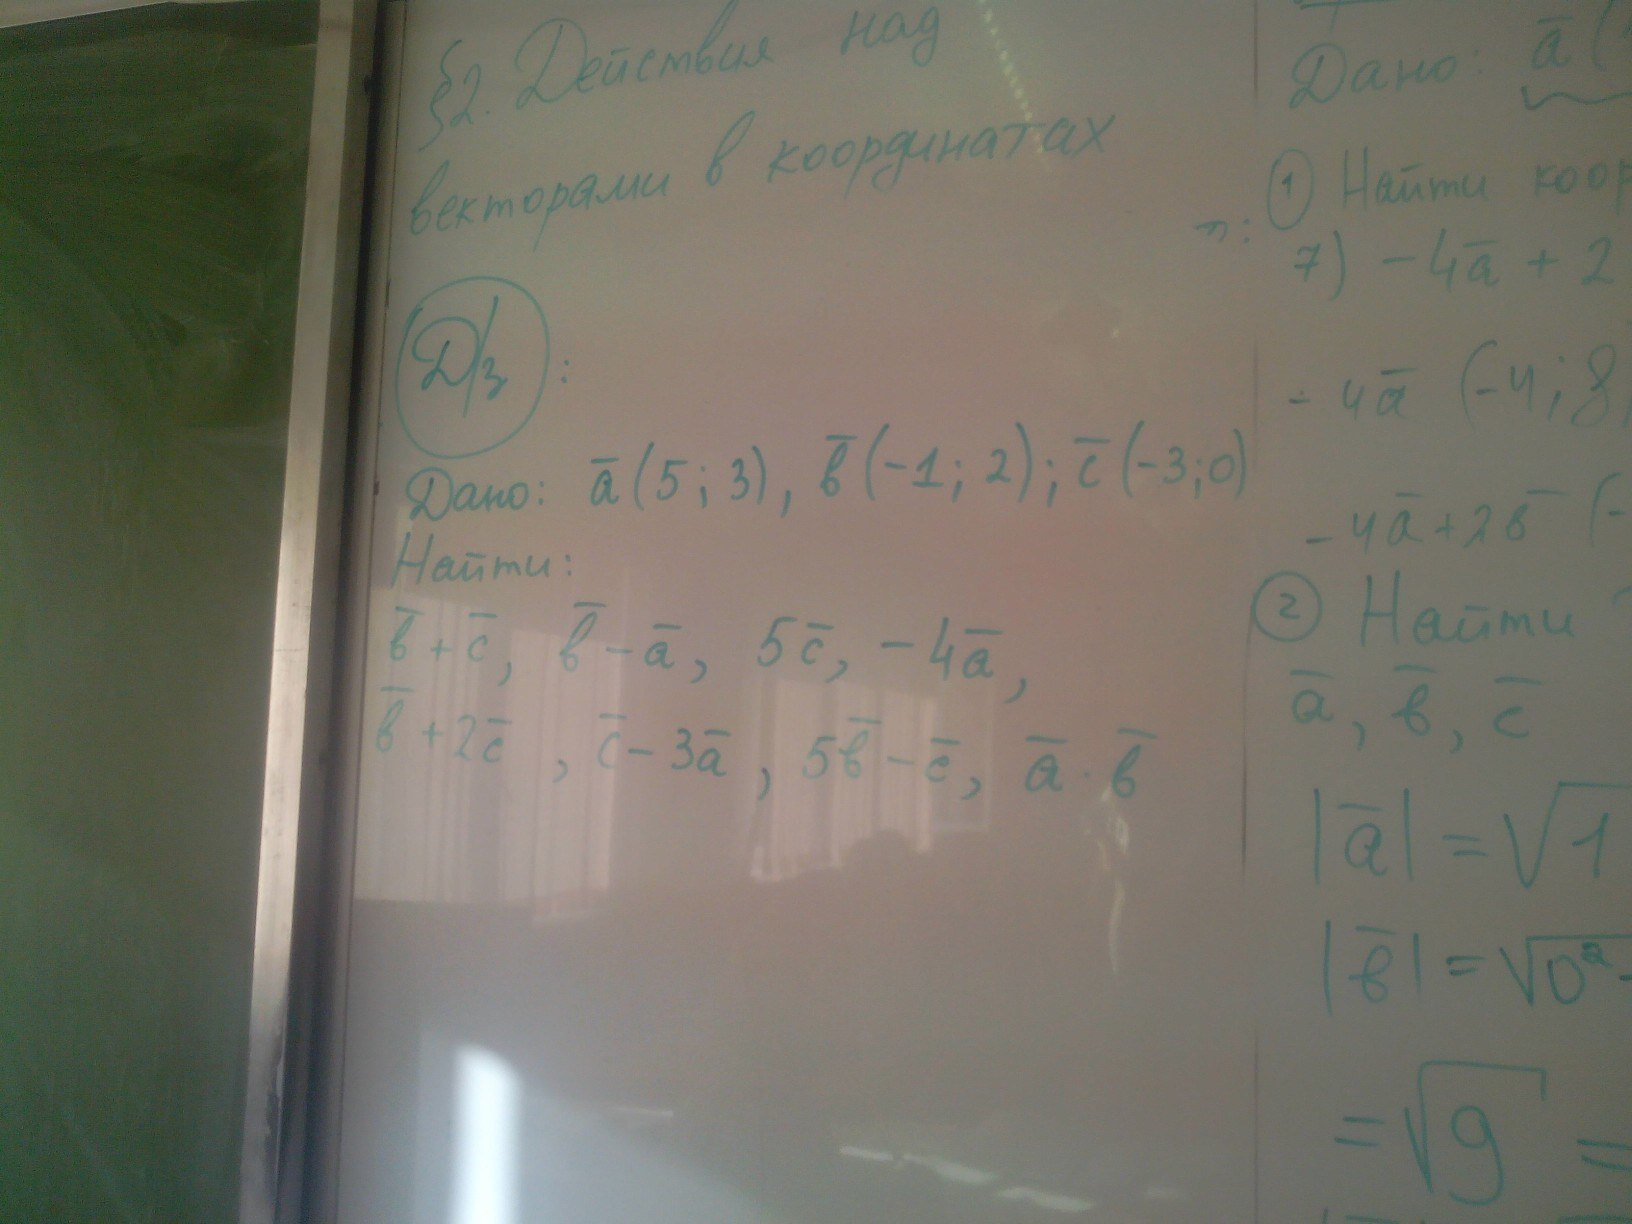 §2. Действия над
векторами в координатах
Д/з :
Дано: a̅ (5 ; 3), в̅ (-1 ; 2) ; c̅ (-3 ; 0)
Найти:
в̅ + c̅, в̅ - a̅, 5c̅, -4a̅,
в̅ + 2c̅ , c̅ - 3a̅ , 5в̅ - c̅, a̅ · в̅
Дано: a̅ (
① Найти коор
7) - 4a̅ + 2
- 4a̅ (-4 ; 8
- 4a̅ + 2в̅ (-
② Найти
a̅, в̅, c̅
|a̅| = √1
|в̅| = √0²
= √9 =